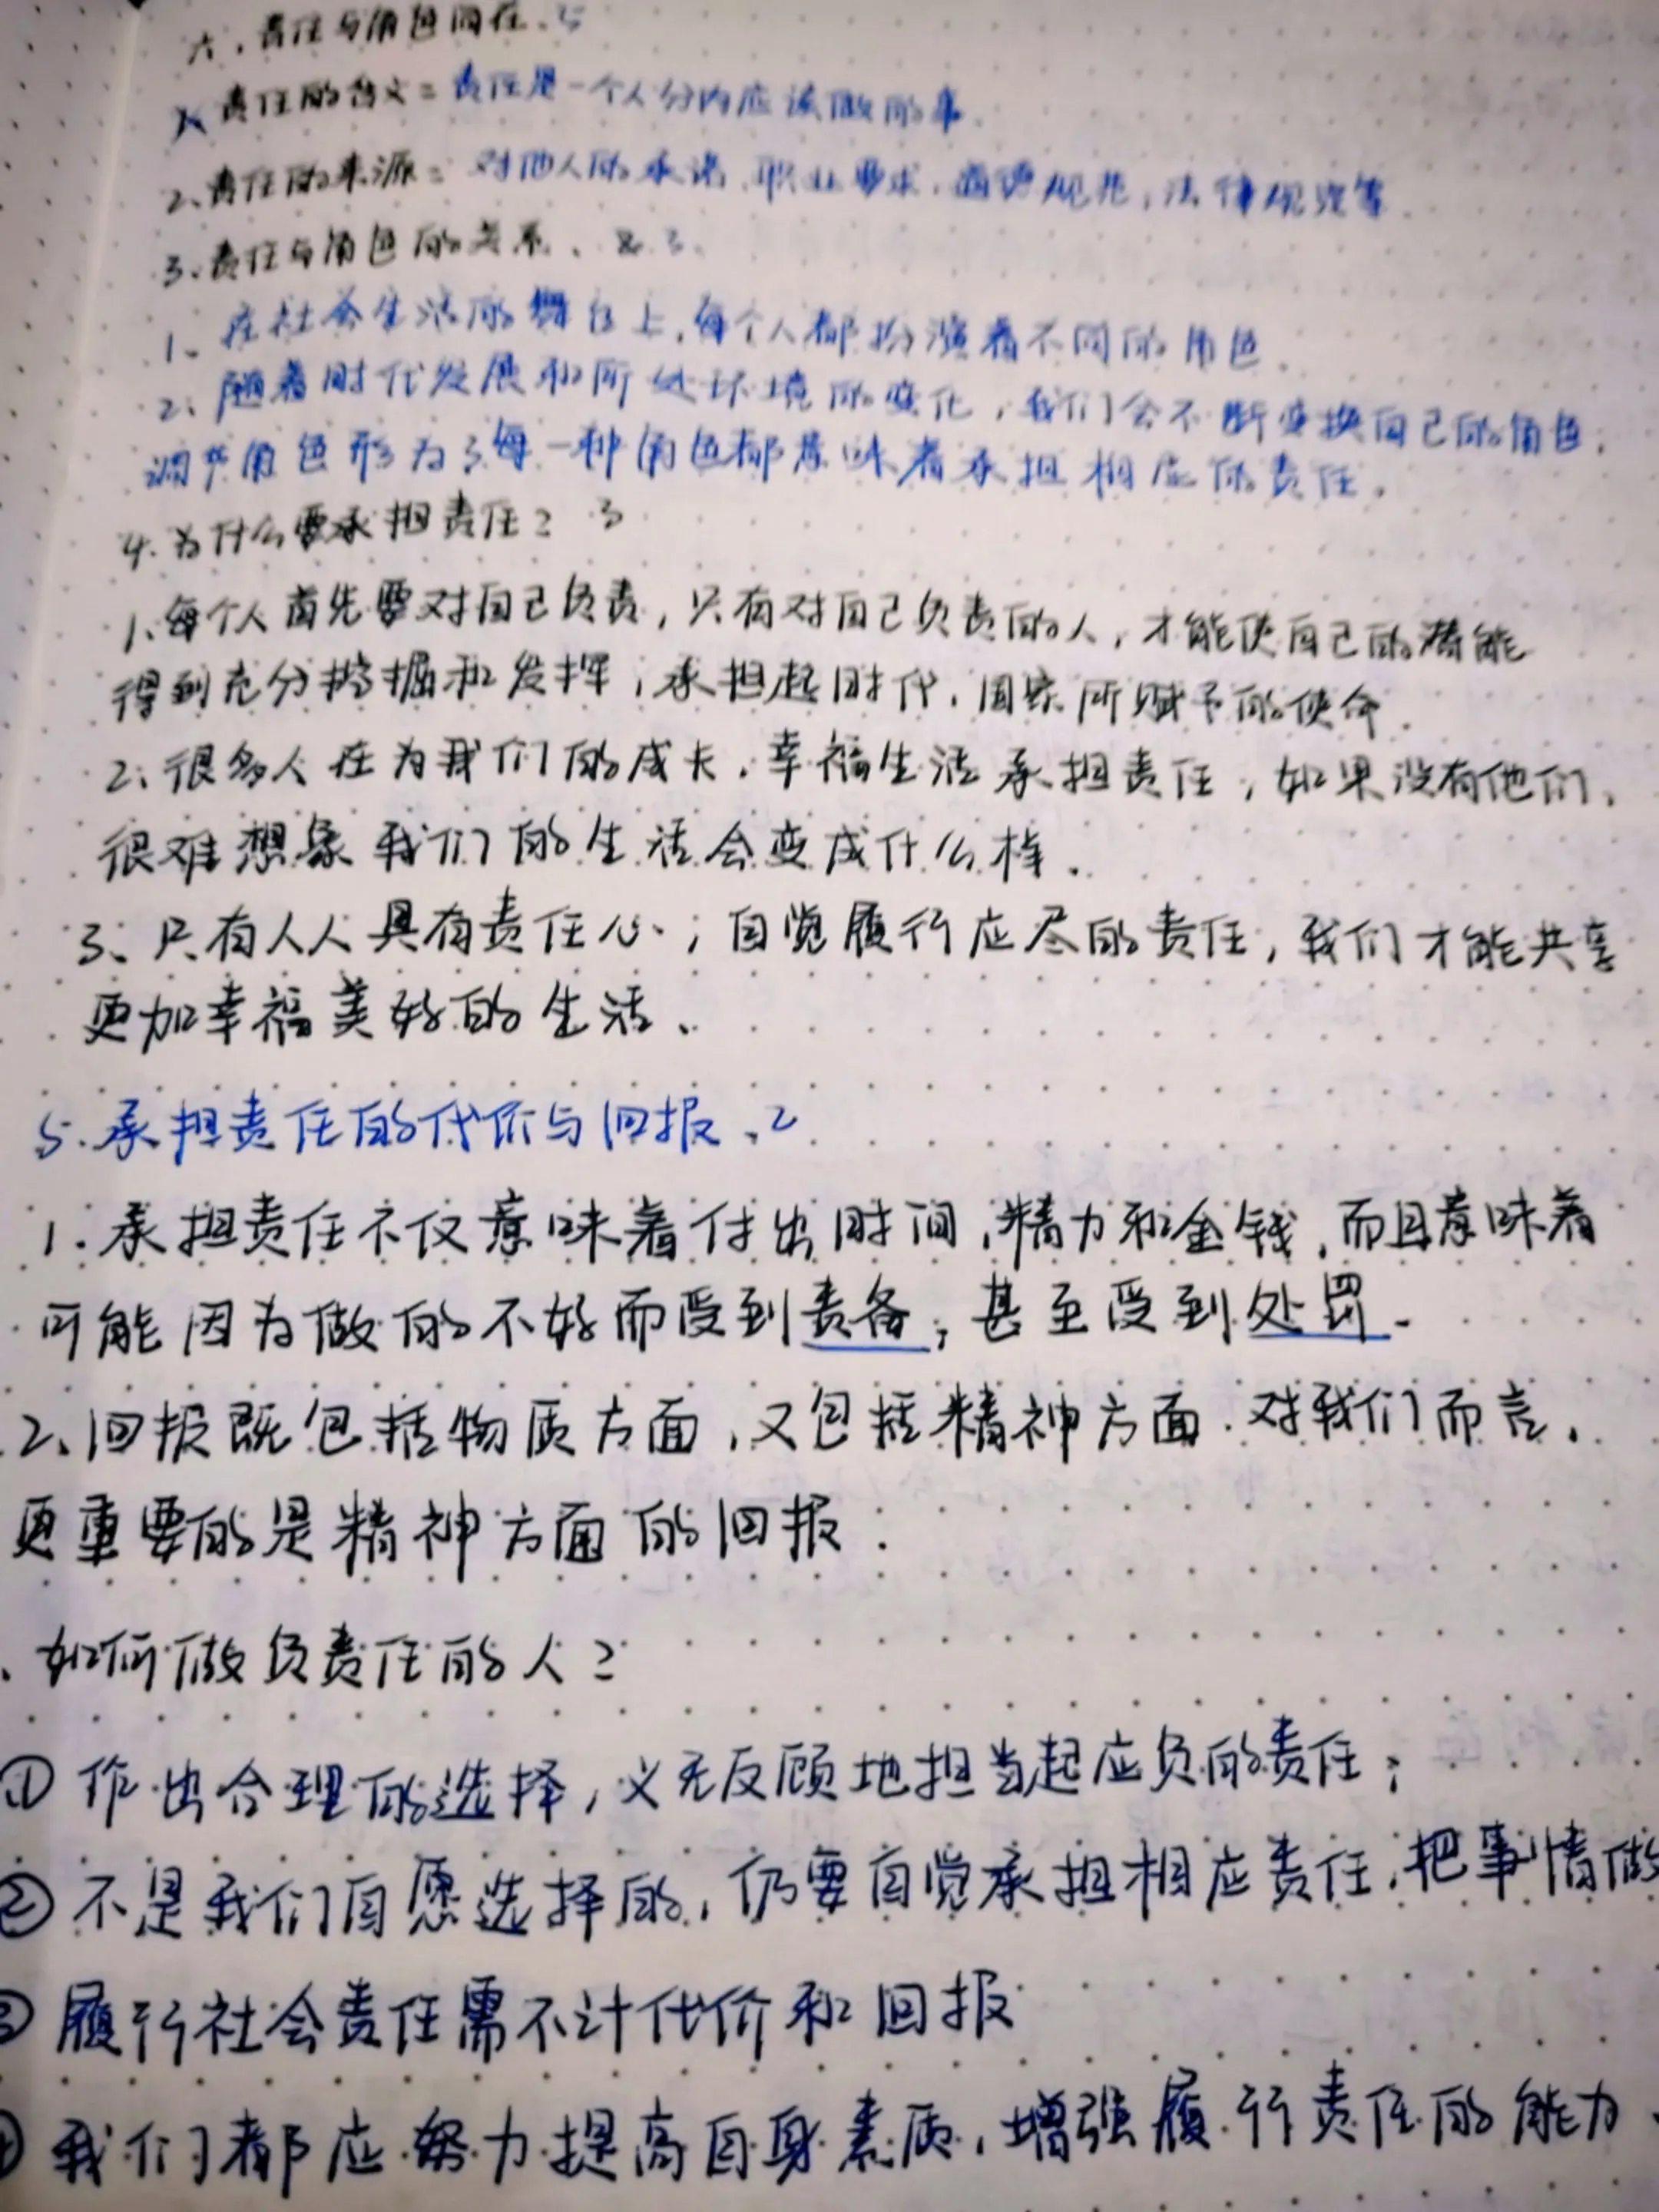 六、责任与角色同在、5
1、责任的含义：责任是一个人分内应该做的事.
2、责任的来源：对他人的承诺、职业要求、道德规范，法律规定等.
3、责任与角色的关系、 3、
1、在社会生活的舞台上，每个人都扮演着不同的角色.
2、随着时代发展和所处环境的变化，我们会不断变换自己的角色，
调节角色形为 3.每一种角色都意味着承担相应的责任。
4.为什么要承担责任？ 3
1、每个人首先要对自己负责，只有对自己负责的人，才能使自己的潜能
得到充分挖掘和发挥；承担起时代、国家所赋予的使命.
2、很多人在为我们的成长、幸福生活承担责任，如果没有他们，
很难想象我们的生活会变成什么样.
3、只有人人具有责任心；自觉履行应尽的责任，我们才能共享
更加幸福美好的生活、
5.承担责任的代价与回报、2
1.承担责任不仅意味着付出时间、精力和金钱，而且意味着
可能因为做的不好而受到责备，甚至受到处罚.
2、回报既包括物质方面，又包括精神方面.对我们而言，
更重要的是精神方面的回报.
、如何做负责任的人？
①作出合理的选择，义无反顾地担当起应负的责任；
②不是我们自愿选择的，仍要自觉承担相应责任，把事情做
③履行社会责任需不计代价和回报
④我们都应努力提高自身素质，增强履行责任的能力、